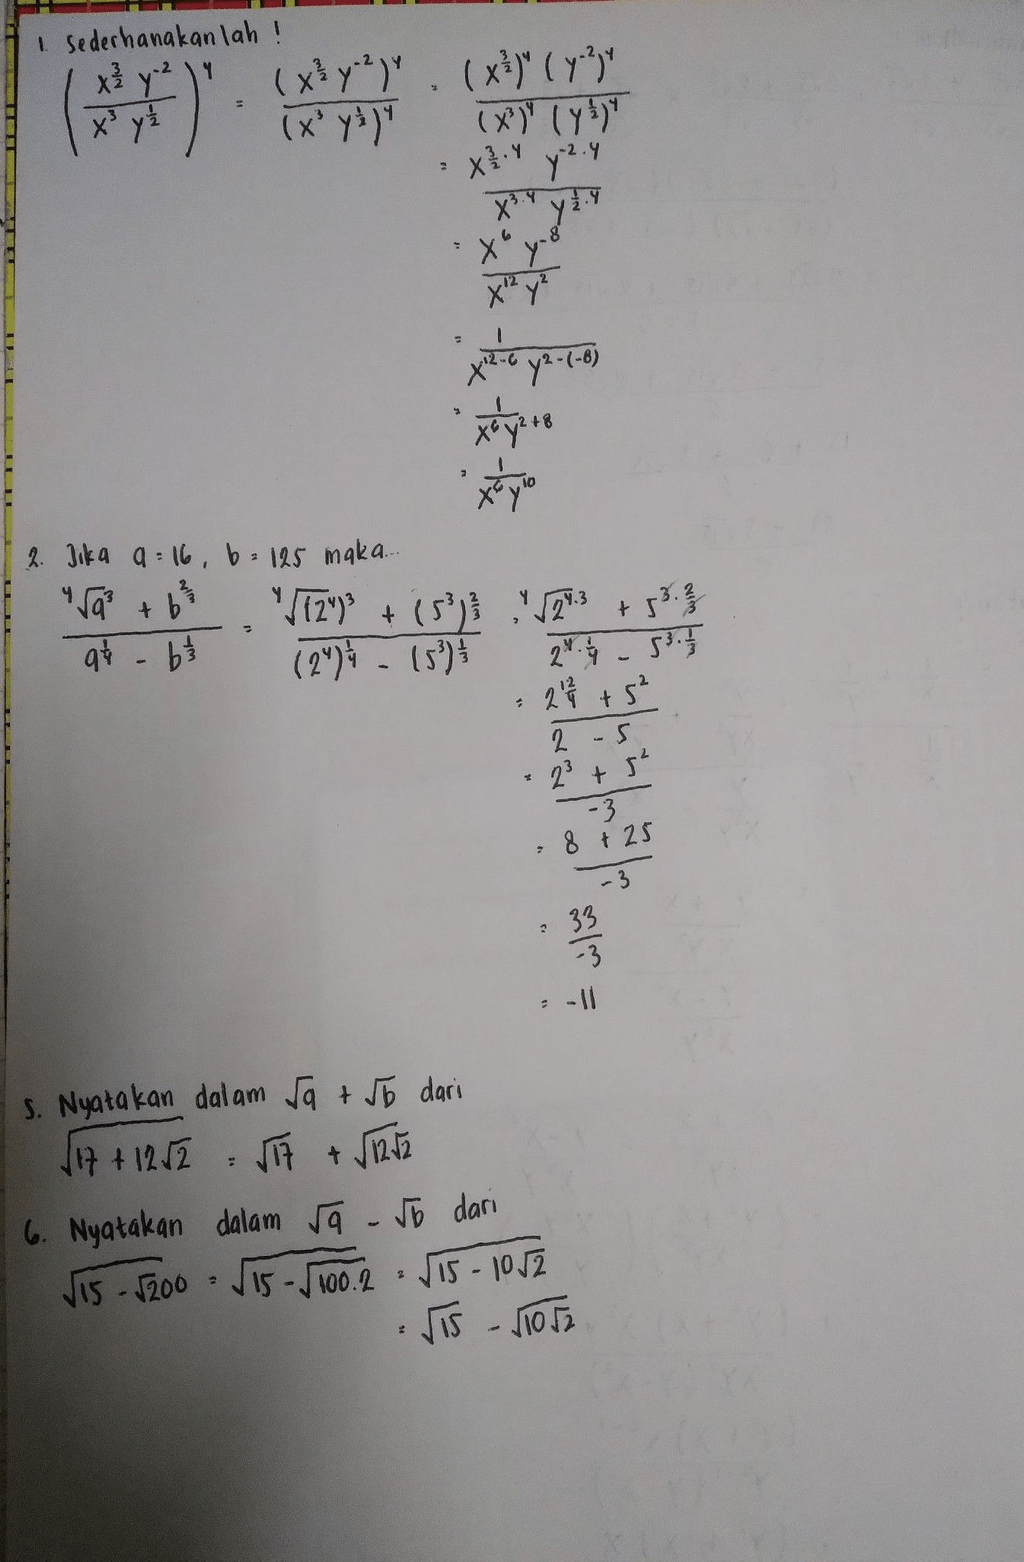 1. Sederhanakanlah !
(x^{3/2} y^{-2} / x^3 y^{1/2})^4 = (x^{3/2} y^{-2})^4 / (x^3 y^{1/2})^4 = (x^{3/2})^4 (y^{-2})^4 / (x^3)^4 (y^{1/2})^4
= x^{3/2 . 4} y^{-2 . 4} / x^{3.4} y^{1/2 . 4}
= x^6 y^{-8} / x^{12} y^2
= 1 / x^{12-6} y^{2-(-8)}
= 1 / x^6 y^{2+8}
= 1 / x^6 y^{10}
2. Jika a = 16, b = 125 maka...
⁴√a^3 + b^{2/3} / a^{1/4} - b^{1/3} = ⁴√(2^4)^3 + (5^3)^{2/3} / (2^4)^{1/4} - (5^3)^{1/3} = ⁴√2^{4.3} + 5^{3 . 2/3} / 2^{4 . 1/4} - 5^{3 . 1/3}
= 2^{12/4} + 5^2 / 2 - 5
= 2^3 + 5^2 / -3
= 8 + 25 / -3
= 33 / -3
= -11
5. Nyatakan dalam √a + √b dari
√(17 + 12√2) = √17 + √(12√2)
6. Nyatakan dalam √a - √b dari
√(15 - √200) = √(15 - √100.2) = √(15 - 10√2)
= √15 - √(10√2)